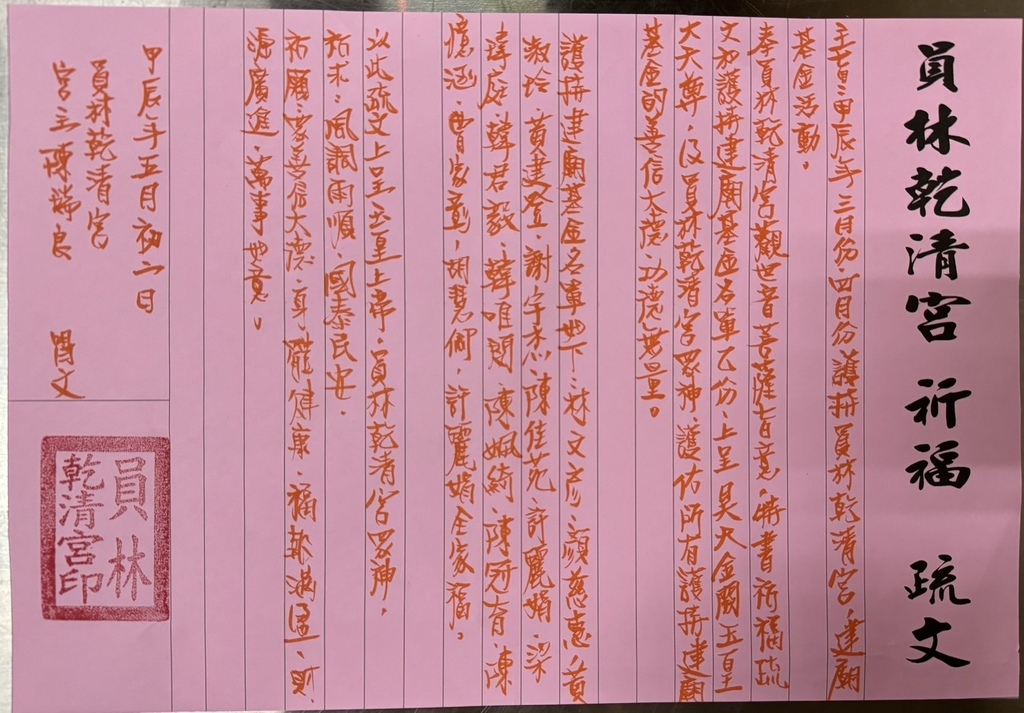 員林乾清宮 祈福 疏文
主旨:甲辰年三月份、四月份護持員林乾清宮,建廟
基金活動。
奉員林乾清宮觀世音菩薩旨意,特書祈福疏
文和護持建廟基金名單乙份,上呈昊天金闕玉皇
大天尊,及員林乾清宮眾神,護佑所有護持建廟
基金的善信大德,功德無量。
護持建廟基金名單如下:林文彥、顏慈惠、黃
淑玲、黃建登、謝宇杰、陳佳苑、許麗娟、梁
緯庭、韓君毅、韓唯閎、陳姵綺、陳冠有、陳
憶涵、曾家彰,胡慧卿,許麗娟全家福。
以此疏文上呈玉皇上帝,員林乾清宮眾神,
祈求,風調雨順,國泰民安。
祈願、眾善信大德、身體健康、福報滿溢、財
源廣進、萬事如意。
甲辰年五月初二日
員林乾清宮
宮主陳瑞良 具文
員林
乾清宮印